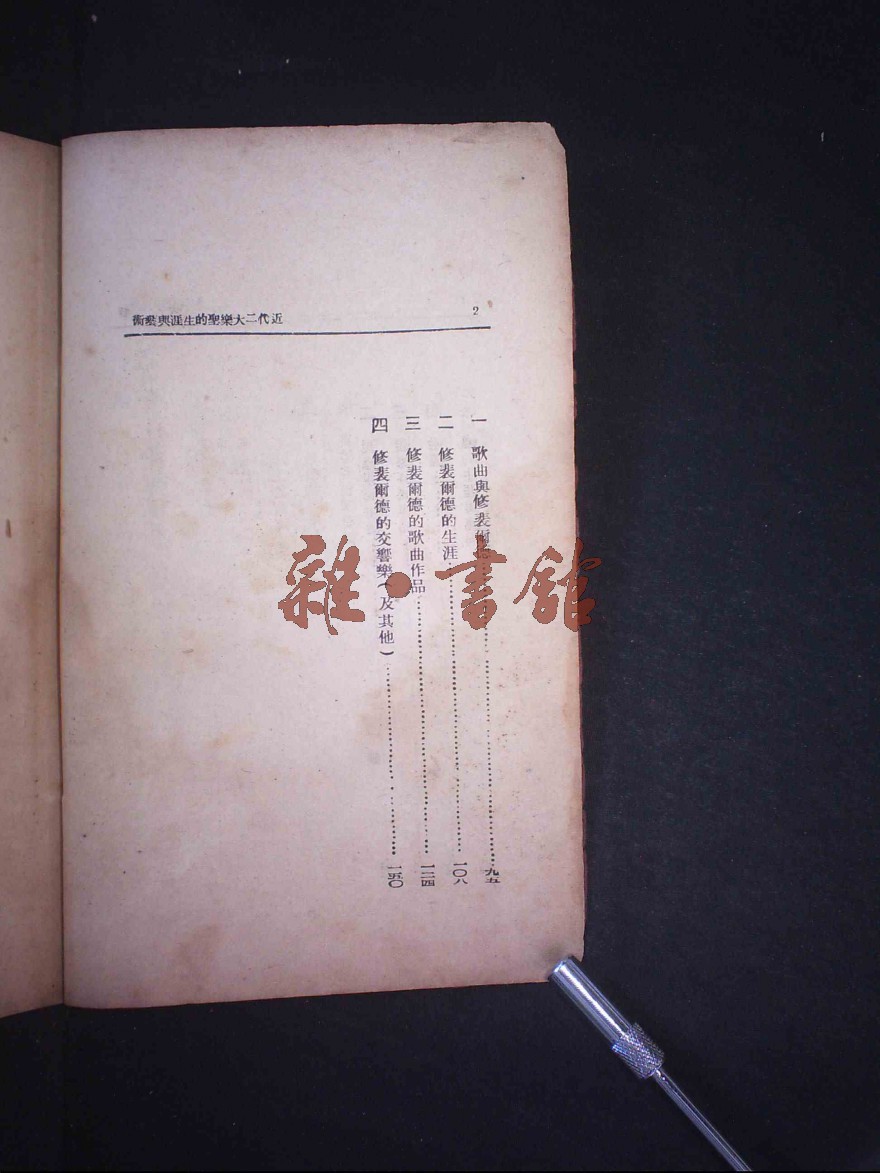 2
近代二大樂聖的生涯與藝術
一 歌曲與修裴爾德……九五
二 修裴爾德的生涯……一〇八
三 修裴爾德的歌曲作品……一二四
四 修裴爾德的交響樂(及其他)……一五〇
雜·書館